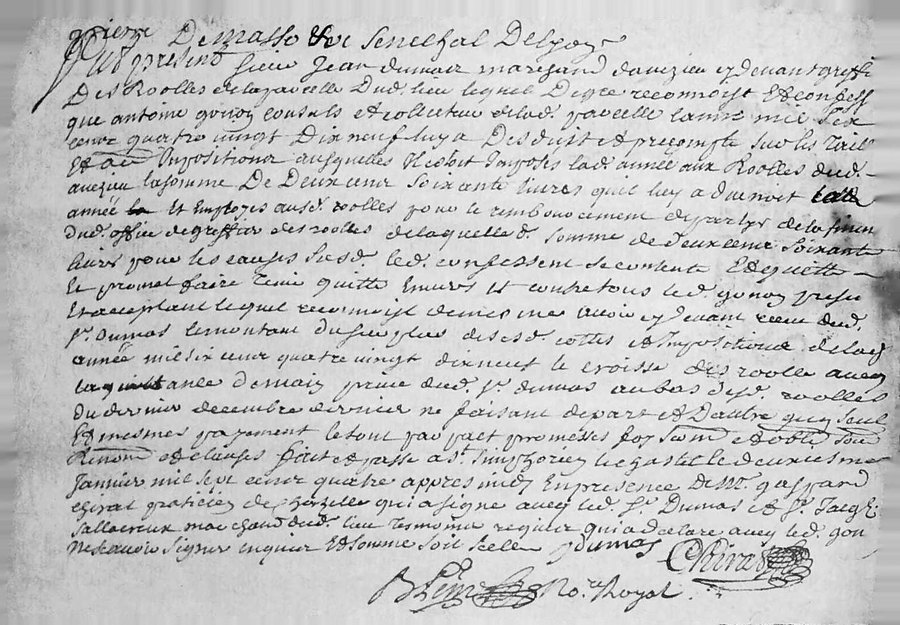 pierre Demasso & de Senechal De Lyon
Fut present Sieur Jean dumas marchand daveizieu cy devant greffi
Des Roolles de la parcelle Dud. lieu lequel De gre reconnoist Et confess
que antoine gonon consuls et collecteur de lad. parcelle lannee mil Six
cent quatre vingt Dix neuf luy a Desduit et precompte sur les Taill
Et Impositions ausquelles Il estoit Impose lad. année aux Roolles dud.
aveizieu la somme De Deux cent Soixante livres quil luy advenoit
année Et Employes ausd. roolles pour le remboursement de partye de la finan
dud. office de greffier des roolles de laquelle d. somme de deux cent Soixante
livres pour les causes susd. led. confessent se contente Et quitte
Et promet faire Tenir quitte Envers Et contre tous led. gonon presen
Et acceptant lequel reconnoist de mesme avoir cy devant receu dud.
Sr. Dumas le montant du surplus des susd. cottes et Impositions de lad.
année mil six cent quatre vingt dix neuf le croisse des roolle avec
la quittance de main privee dud. Sr. dumas au bas desd. roolles
du dernier decembre dernier ne faisant depart et Daultre quun seul
Et mesmes payement le tout par pact promesses foy serm et oblig. soub
Renon et clauses fait et passe a St. Simphorien le chastel le deuxiesme
Janvier mil sept cent quatre appres midy En presence de Mr. gaspard
chirat praticien de qui a signe avec led. Sr. Dumas et Sr. Jacques
marchand dud. lieu tesmoins requier qui a declare avec led. gon
ne scavoir signer enquis Et somme soit scelle Dumas Chirat
No.re Royal